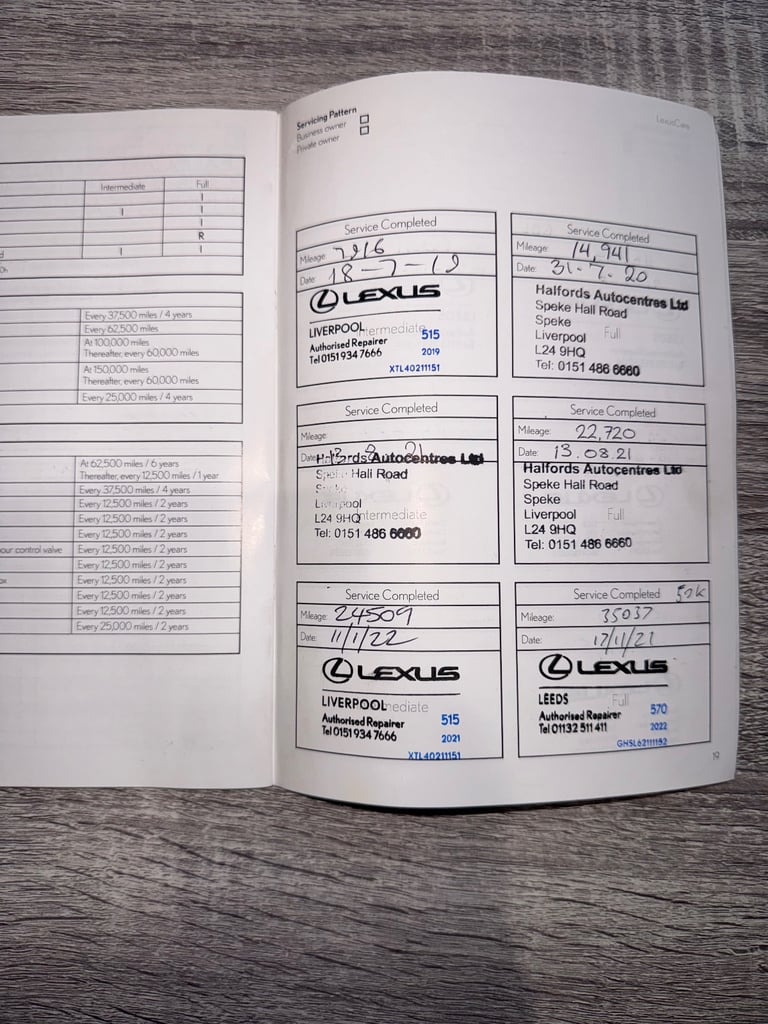 Intermediate Full
I
I I
I
R
I I
Every 37,500 miles / 4 years
Every 62,500 miles
At 100,000 miles
Thereafter, every 60,000 miles
At 150,000 miles
Thereafter, every 60,000 miles
Every 25,000 miles / 4 years
At 62,500 miles / 6 years
Thereafter, every 12,500 miles / 1 year
Every 37,500 miles / 4 years
Every 12,500 miles / 2 years
Every 12,500 miles / 2 years
Every 12,500 miles / 2 years
our control valve Every 12,500 miles / 2 years
Every 12,500 miles / 2 years
Every 12,500 miles / 2 years
Every 12,500 miles / 2 years
Every 12,500 miles / 2 years
Every 25,000 miles / 2 years
Servicing Pattern
Business owner
Private owner
LexusCare
Service Completed
Mileage: 7916
Date: 18-7-19
LEXUS
LIVERPOOL Intermediate 515
Authorised Repairer
2019
Tel 0151 934 7666
XTL40211151
Service Completed
Mileage: 14,941
Date: 31.7.20
Halfords Autocentres Ltd
Speke Hall Road
Speke
Liverpool Full
L24 9HQ
Tel: 0151 486 6660
Service Completed
Mileage:
Date:
Halfords Autocentres Ltd
Speke Hall Road
Speke
Liverpool
L24 9HQ Intermediate
Tel: 0151 486 6660
Service Completed
Mileage: 22,720
Date: 13.08.21
Halfords Autocentres Ltd
Speke Hall Road
Speke
Liverpool Full
L24 9HQ
Tel: 0151 486 6660
Service Completed
Mileage: 24509
Date: 11/1/22
LEXUS
LIVERPOOL mediate
Authorised Repairer 515
Tel 0151 934 7666 2021
XTL40211151
Service Completed 50k
Mileage: 35037
Date: 17/11/21
LEXUS
LEEDS Full
Authorised Repairer 570
Tel 01132 511 411 2022
GHSL62111152
19